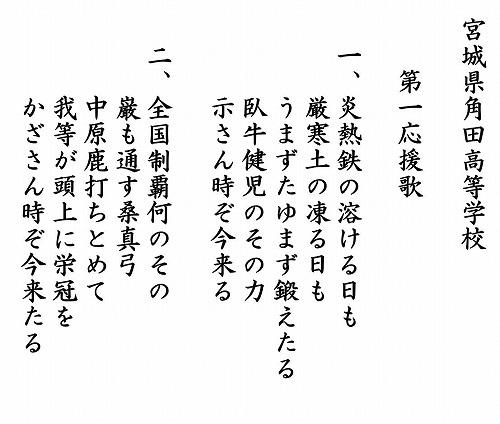 宮城県角田高等学校
第一応援歌
一、炎熱鉄の溶ける日も
厳寒土の凍る日も
うまずたゆまず鍛えたる
臥牛健児のその力
示さん時ぞ今来る
二、全国制覇何のその
巌も通す桑真弓
中原鹿打ちとめて
我等が頭上に栄冠を
かざさん時ぞ今来たる